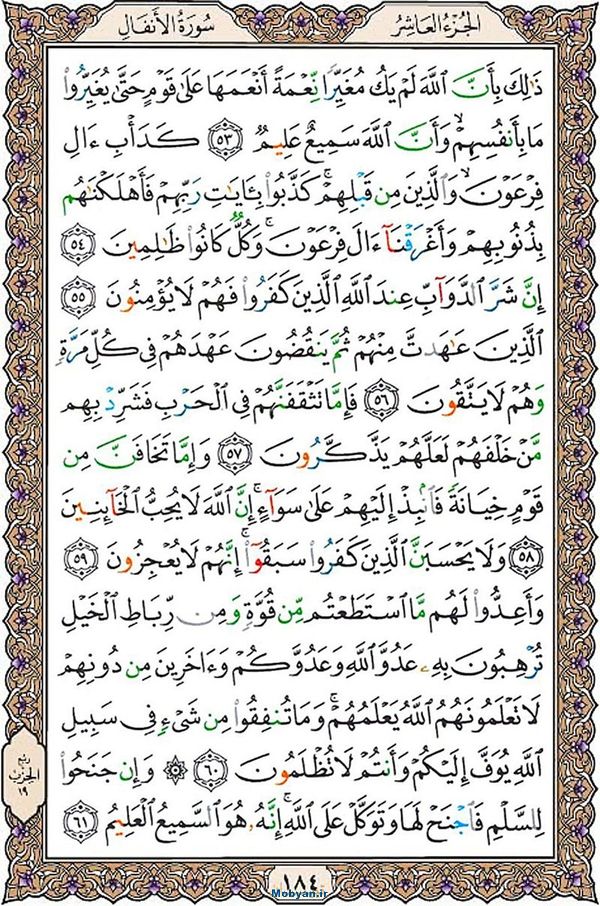 الجزء العاشر
سورة الأنفال
ذَٰلِكَ بِأَنَّ ٱللَّهَ لَمْ يَكُ مُغَيِّرًا نِّعْمَةً أَنْعَمَهَا عَلَىٰ قَوْمٍ حَتَّىٰ يُغَيِّرُوا۟
مَا بِأَنفُسِهِمْ ۙ وَأَنَّ ٱللَّهَ سَمِيعٌ عَلِيمٌ ٥٣ كَدَأْبِ ءَالِ
فِرْعَوْنَ ۙ وَٱلَّذِينَ مِن قَبْلِهِمْ ۚ كَذَّبُوا۟ بِـَٔايَـٰتِ رَبِّهِمْ فَأَهْلَكْنَـٰهُم
بِذُنُوبِهِمْ وَأَغْرَقْنَآ ءَالَ فِرْعَوْنَ ۚ وَكُلٌّ كَانُوا۟ ظَـٰلِمِينَ ٥٤
إِنَّ شَرَّ ٱلدَّوَآبِّ عِندَ ٱللَّهِ ٱلَّذِينَ كَفَرُوا۟ فَهُمْ لَا يُؤْمِنُونَ ٥٥
ٱلَّذِينَ عَـٰهَدتَّ مِنْهُمْ ثُمَّ يَنقُضُونَ عَهْدَهُمْ فِى كُلِّ مَرَّةٍ
وَهُمْ لَا يَتَّقُونَ ٥٦ فَإِمَّا تَثْقَفَنَّهُمْ فِى ٱلْحَرْبِ فَشَرِّدْ بِهِم
مَّنْ خَلْفَهُمْ لَعَلَّهُمْ يَذَّكَّرُونَ ٥٧ وَإِمَّا تَخَافَنَّ مِن
قَوْمٍ خِيَانَةً فَٱنۢبِذْ إِلَيْهِمْ عَلَىٰ سَوَآءٍ ۚ إِنَّ ٱللَّهَ لَا يُحِبُّ ٱلْخَآئِنِينَ
٥٨ وَلَا يَحْسَبَنَّ ٱلَّذِينَ كَفَرُوا۟ سَبَقُوٓا۟ ۚ إِنَّهُمْ لَا يُعْجِزُونَ ٥٩
وَأَعِدُّوا۟ لَهُم مَّا ٱسْتَطَعْتُم مِّن قُوَّةٍ وَمِن رِّبَاطِ ٱلْخَيْلِ
تُرْهِبُونَ بِهِۦ عَدُوَّ ٱللَّهِ وَعَدُوَّكُمْ وَءَاخَرِينَ مِن دُونِهِمْ
لَا تَعْلَمُونَهُمُ ٱللَّهُ يَعْلَمُهُمْ ۚ وَمَا تُنفِقُوا۟ مِن شَىْءٍ فِى سَبِيلِ
ٱللَّهِ يُوَفَّ إِلَيْكُمْ وَأَنتُمْ لَا تُظْلَمُونَ ٦٠ ۞ وَإِن جَنَحُوا۟
لِلسَّلْمِ فَٱجْنَحْ لَهَا وَتَوَكَّلْ عَلَى ٱللَّهِ ۚ إِنَّهُۥ هُوَ ٱلسَّمِيعُ ٱلْعَلِيمُ ٦١
ربع
الحزب
١٩
١٨٤
Mobyan.ir